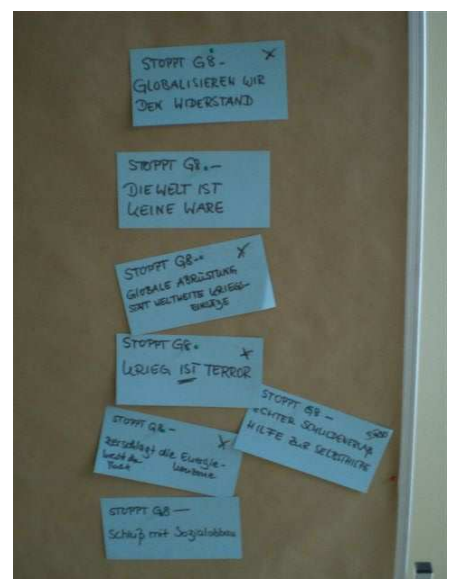 STOPPT G8 - X
GLOBALISIEREN WIR
DEN WIDERSTAND
STOPPT G8. —
DIE WELT IST
KEINE WARE
STOPPT G8 - X
GLOBALE ABRÜSTUNG
STATT WELTWEITE KRIEGS-
EINSÄTZE
STOPPT G8. X
KRIEG IST TERROR
STOPPT G8 -
HILFE ZUR SELBSTHILFE
STOPPT G8 - X
Zerschlagt die Energie-
konzerne
STOPPT G8 —
Schluß mit Sozialabbau